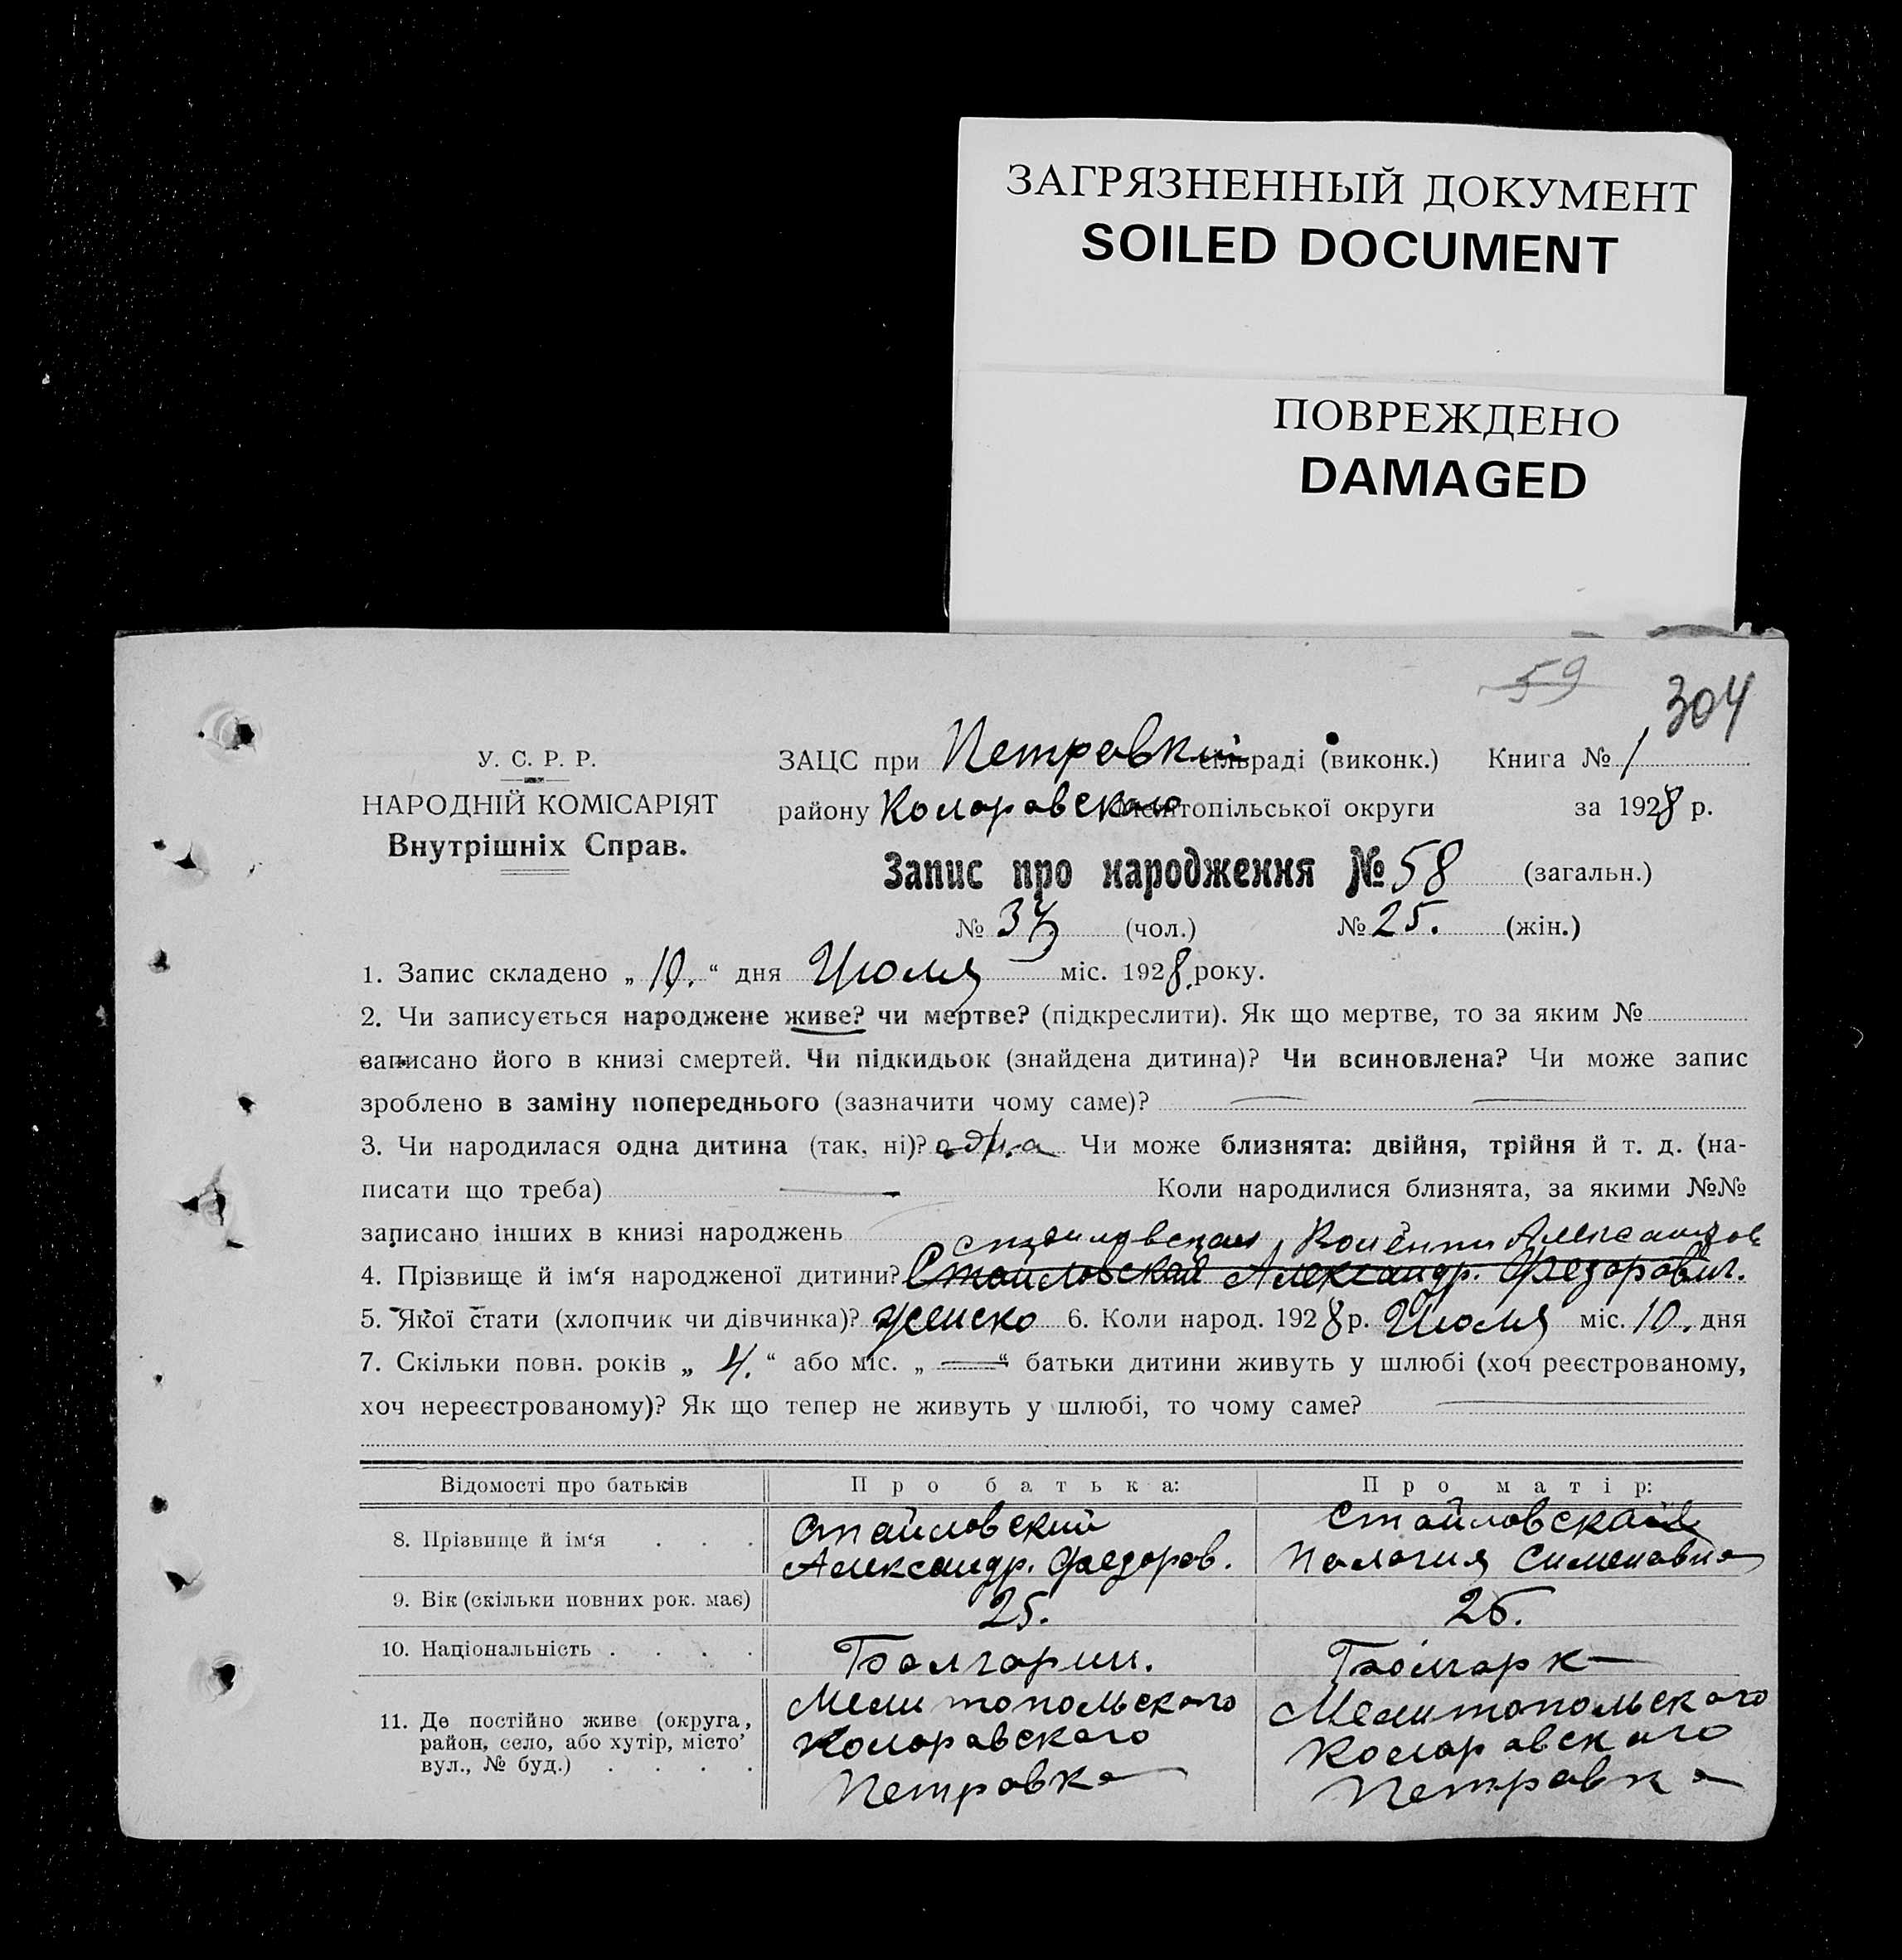 ЗАГРЯЗНЕННЫЙ ДОКУМЕНТ
SOILED DOCUMENT
ПОВРЕЖДЕНО
DAMAGED
59
304
У. С. Р. Р.
НАРОДНІЙ КОМІСАРІЯТ
Внутрішніх Справ.
ЗАЦС при Петровкий сільраді (виконк.) Книга № 1
району Коларовского Мелітопільської округи за 1928 р.
Запис про народження № 58 (загальн.)
№ (чол.) № 25. (жін.)
1. Запис складено „ 10. “ дня Июля міс. 1928 року.
2. Чи записується народжене живе? чи мертве? (підкреслити). Як що мертве, то за яким №
записано його в книзі смертей. Чи підкидьок (знайдена дитина)? Чи всиновлена? Чи може запис
зроблено в заміну попереднього (зазначити чому саме)?
3. Чи народилася одна дитина (так, ні)? одна Чи може близнята: двійня, трійня й т. д. (на-
писати що треба) Коли народилися близнята, за якими №№
записано інших в книзі народжень
Стайловская Александров
4. Прізвище й ім‘я народженої дитини? Стайловский Александр. Федорович.
5. Якої стати (хлопчик чи дівчинка)? женско 6. Коли народ. 1928 р. Июля міс. 10. дня
7. Скільки повн. років „ 4. “ або міс. „ — “ батьки дитини живуть у шлюбі (хоч реєстрованому,
хоч нереєстрованому)? Як що тепер не живуть у шлюбі, то чому саме?
Відомості про батьків Про батька: Про матір:
8. Прізвище й ім‘я . . . Стайловский Александр. Федоров. Стайловская Палагия Сименовна
9. Вік (скільки повних рок. має) 25. 26.
10. Національність . . . . Болгарин. Болгарк
11. Де постійно живе (округа, район, село, або хутір, місто’ вул., № буд.) . . . .
Мелитопольского Мелитопольского
Коларавского Коларавского
Петровка Петравка